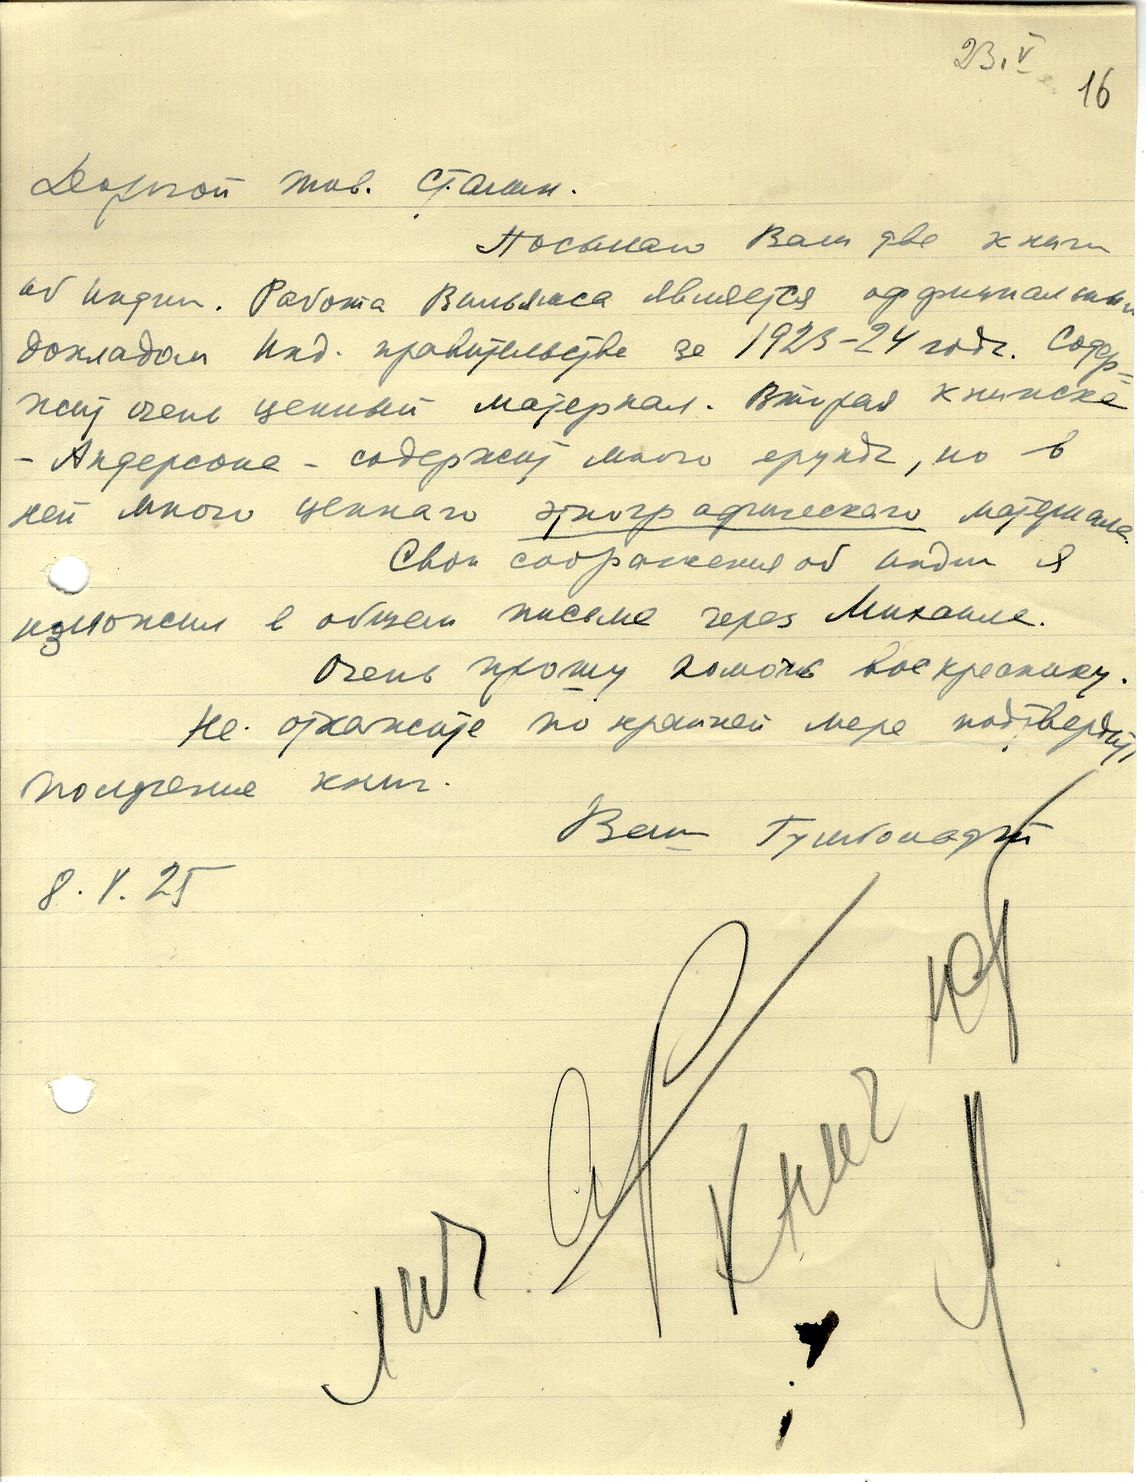 23.V
16
Дорогой тов. Сталин.
Посылаю Вам две книги
об Индии. Работа Вильямса является оффициальным
докладом Инд. правительства за 1923-24 годы. Содер-
жит очень ценный материал. Вторая книжка
- Андерсона - содержит много ерунды, но в
ней много ценнаго этнографического материала.
Свои соображения об Индии я
изложил в общем письме через Михаила.
Очень прошу помочь воскреснику.
Не откажите по крайней мере подтвердить
получение книг.
Ваш
8.V.25
лич арх
Книг